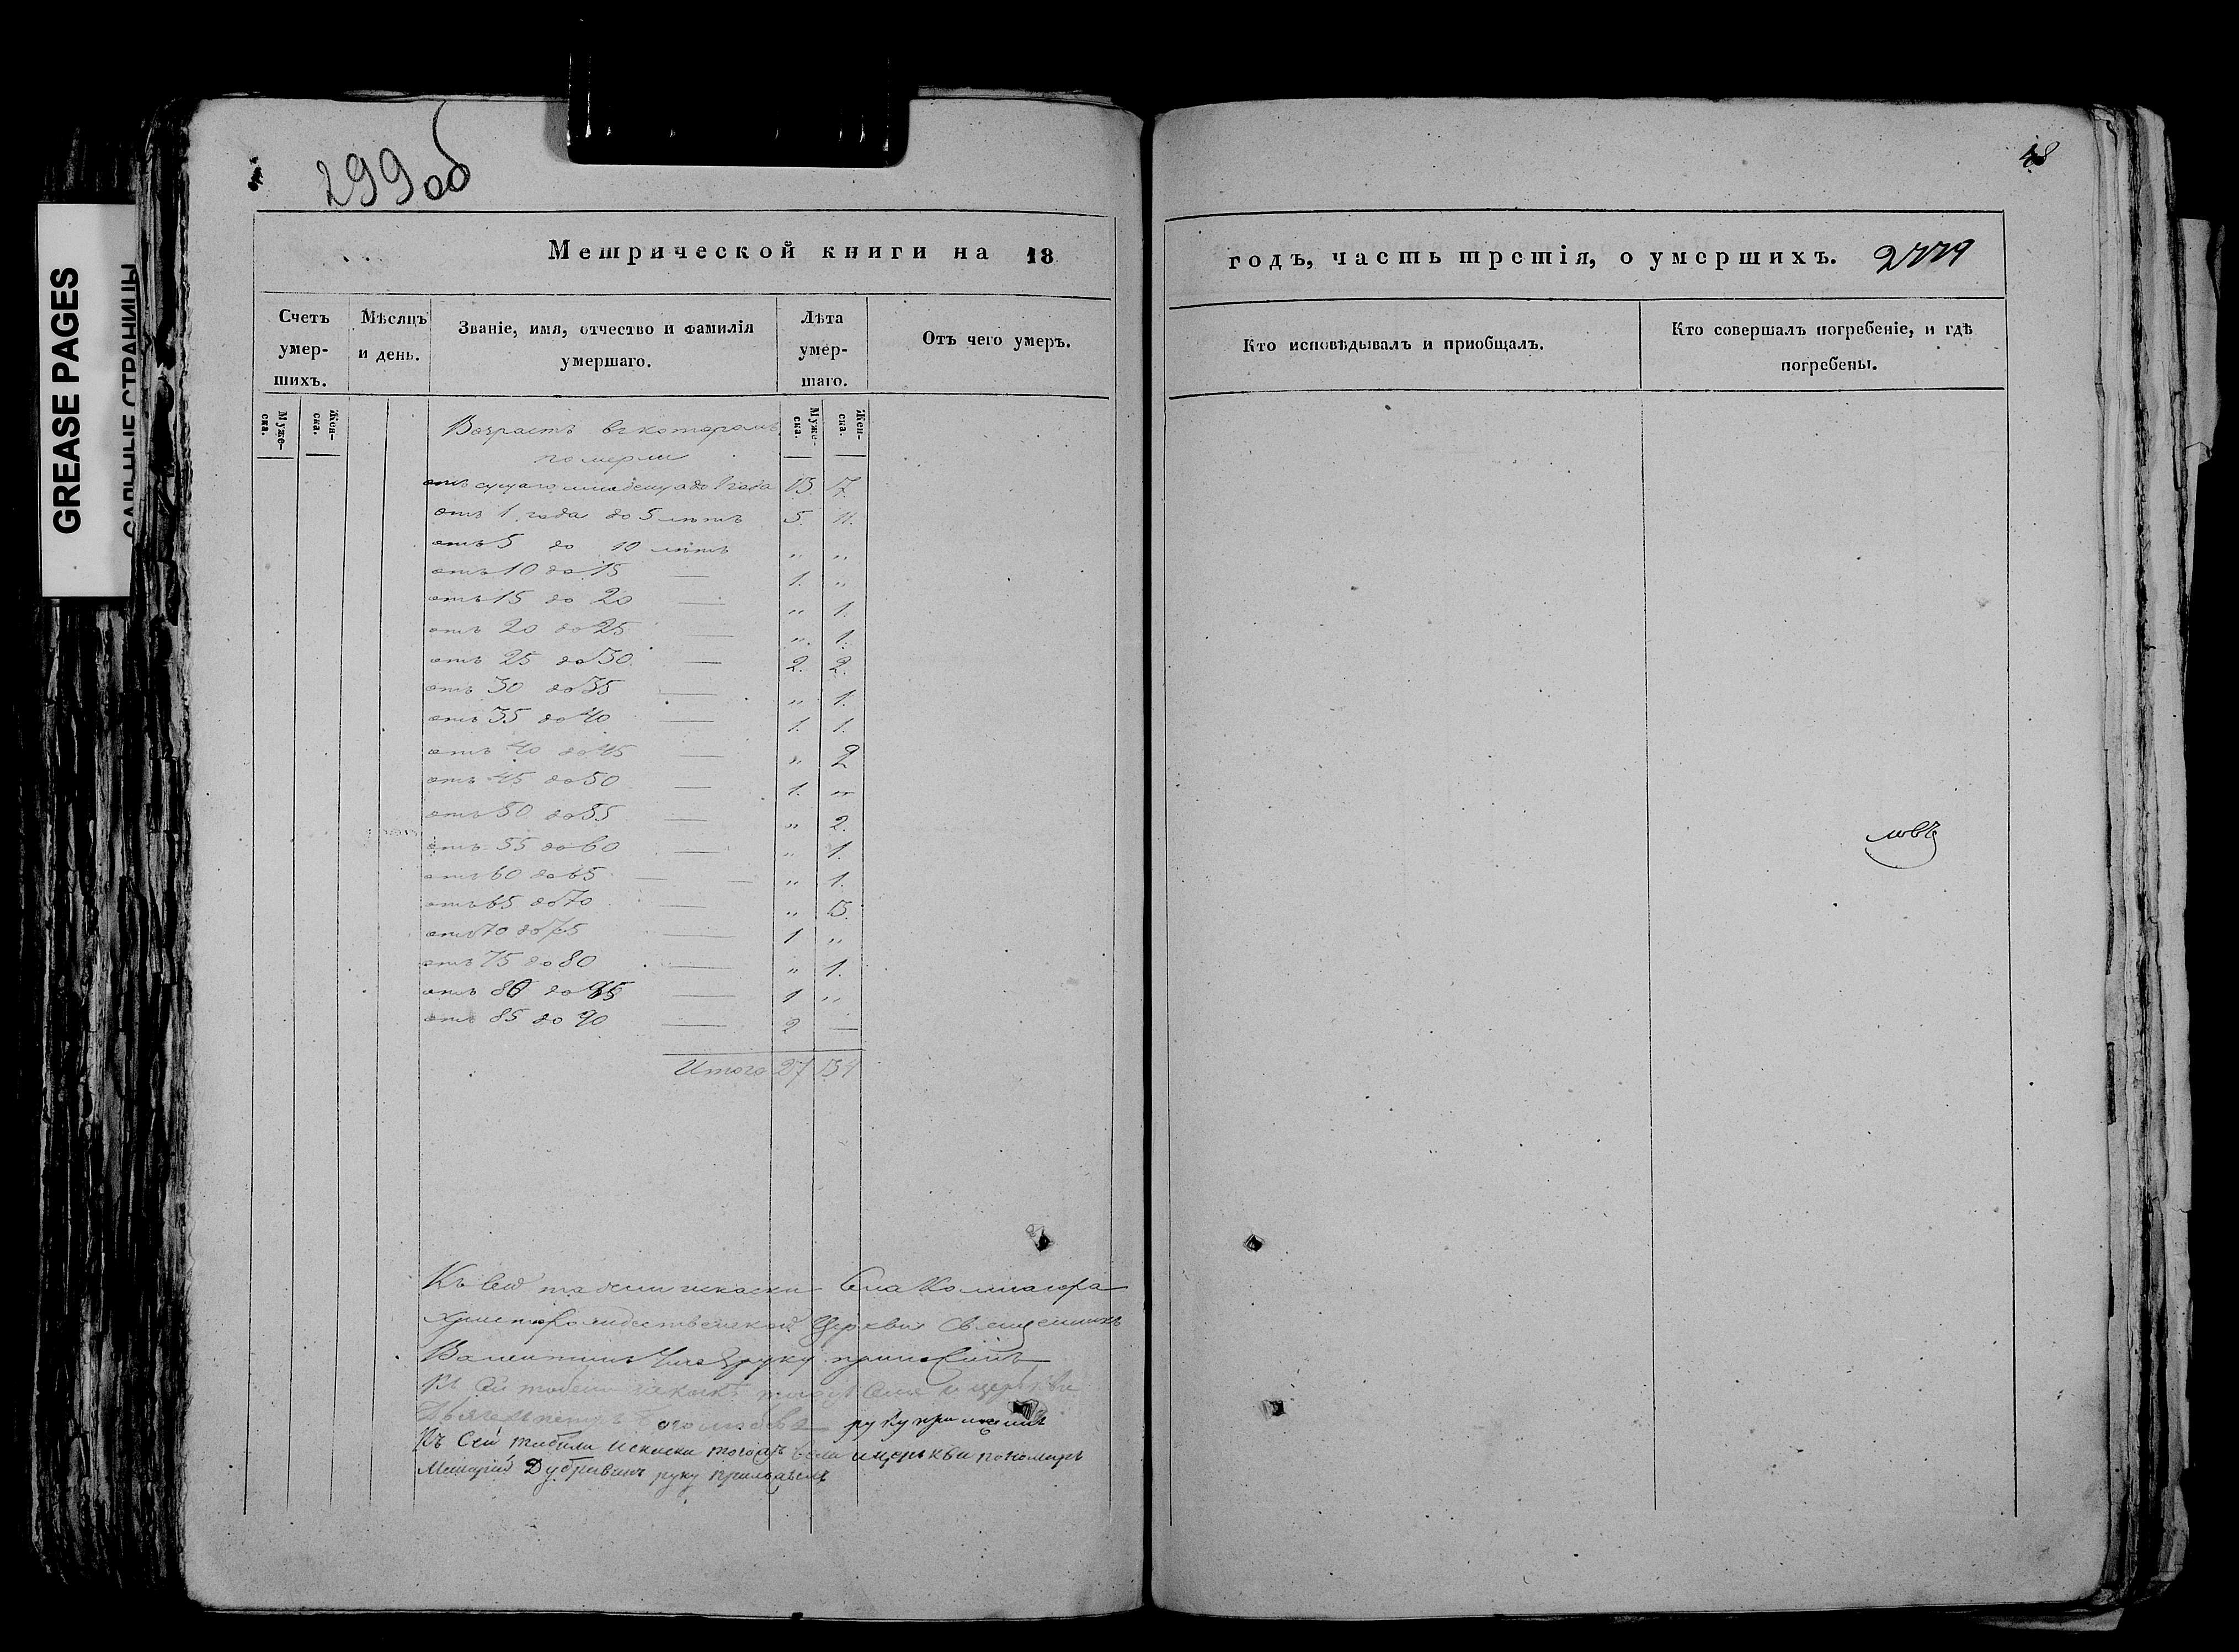 GREASE PAGES
САЛЬНЫЕ СТРАНИЦЫ
299об
Метрической книги на 18
Счетъ умер-шихъ.
Мѣсяцъ и день.
Званіе, имя, отчество и фамилія умершаго.
Лѣта умер-шаго.
Отъ чего умеръ.
Муже-ска.
Жен-ска.
Муже-ска.
Жен-ска.
Возрастъ въ которомъ
померли
отъ сущаго младенца до 1 года 13. 7.
отъ 1 года до 5 лѣтъ 5. 11.
отъ 5 до 10 лѣтъ " "
отъ 10 до 15 — 1. "
отъ 15 до 20 — " 1.
отъ 20 до 25 — " 1.
отъ 25 до 30 — 2. 2.
отъ 30 до 35 — " 1.
отъ 35 до 40 — 1. 1.
отъ 40 до 45 — " 2
отъ 45 до 50 — 1. "
отъ 50 до 55 — " 2.
отъ 55 до 60 — " 1.
отъ 60 до 65 — " 1.
отъ 65 до 70 — " 3.
отъ 70 до 75 — 1 "
отъ 75 до 80 — " 1.
отъ 80 до 85 — 1 "
отъ 85 до 90 — 2 —
Итого 27 34
Къ сей табели Села
Христорождественской Церкви Священникъ
Валентинъ руку приложилъ
Къ сей церкви
руку приложилъ
Къ сей церькви пономарь
руку приложилъ
48
годъ, часть третія, о умершихъ. 2779
Кто исповѣдывалъ и приобщалъ.
Кто совершалъ погребеніе, и гдѣ погребены.
ловъ